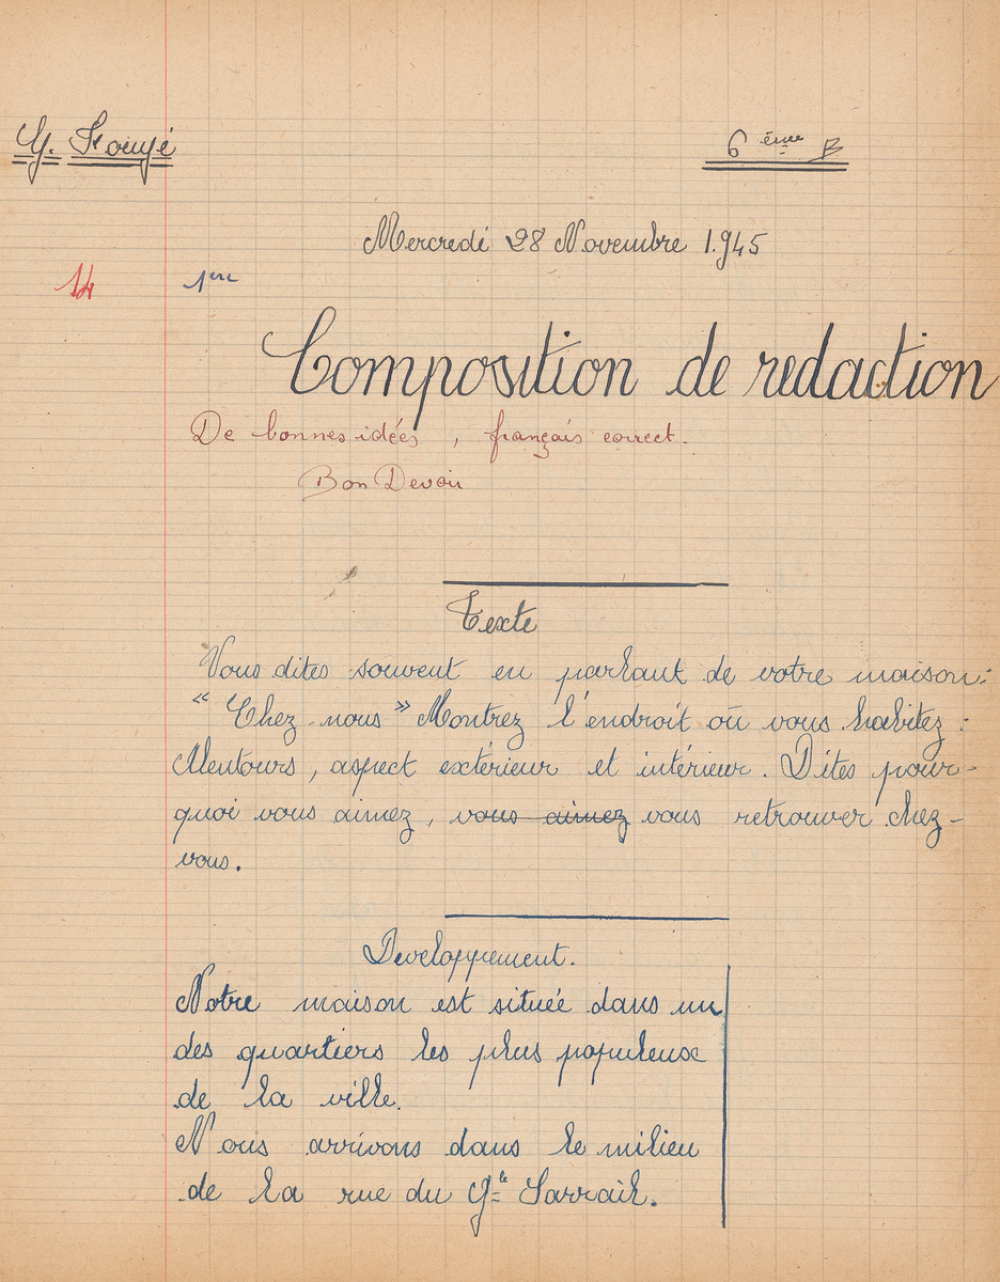 G. Fougé
6 ème B
Mercredi 28 Novembre 1.945
14
1ère
Composition de redaction
De bonnes idées, français correct.
Bon Devoir
Texte
Vous dites souvent en parlant de votre maison:
“ Chez-nous ” Montrez l'endroit où vous habitez :
Alentours, aspect extérieur et intérieur. Dites pour-
quoi vous aimez, vous aimez vous retrouver chez-
vous.
Developpement.
Notre maison est située dans un
des quartiers les plus populeux
de la ville.
Nous arrivons dans le milieu
de la rue du Gal Sarrail.